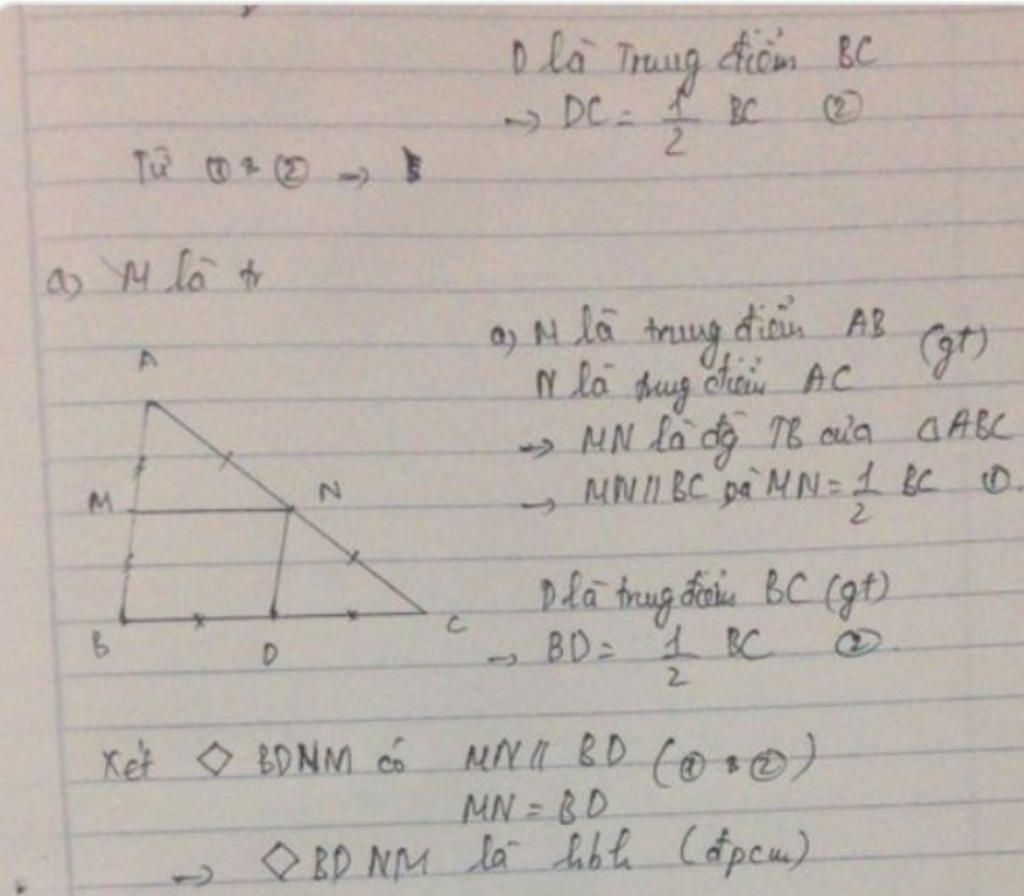 D là Trung điểm BC
→ DC = 1/2 BC ②
Từ ① & ② →
a) M là tr
a) M là trung điểm AB (gt)
N là trung điểm AC
→ MN là đg TB của △ABC
→ MN // BC và MN = 1/2 BC ①.
A
M
N
B
D
C
D là trung điểm BC (gt)
→ BD = 1/2 BC ②.
Xét ◇ BDNM có MN // BD (① & ②)
MN = BD
→ ◇BDNM là hbh (đpcm)